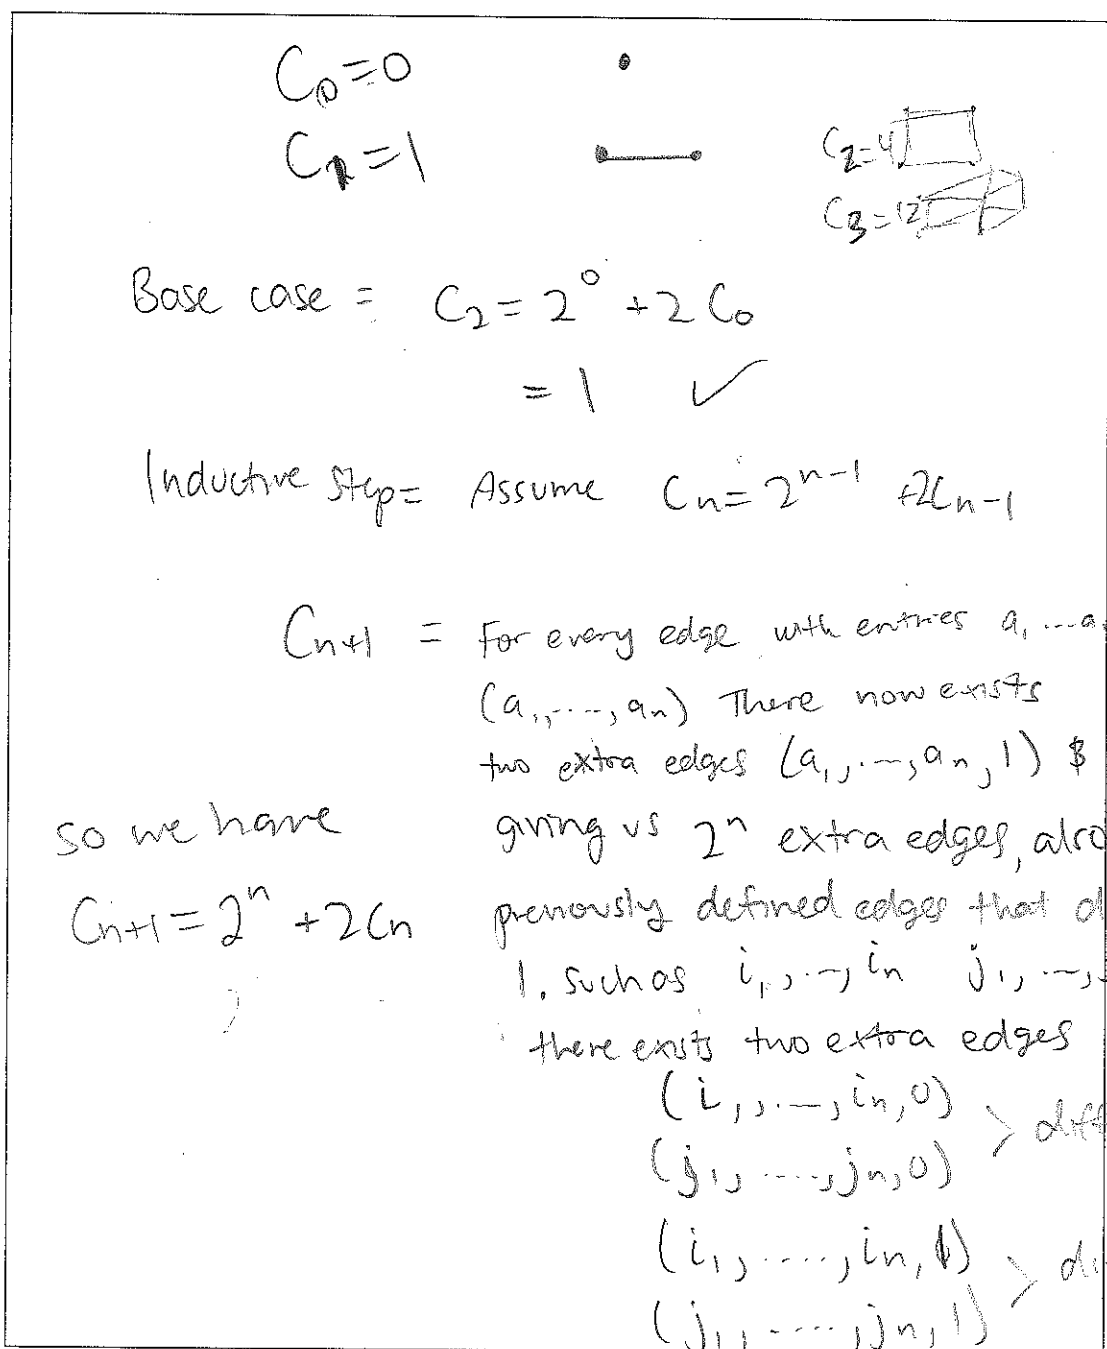 C₀=0
C₁=1
C₂=4
C₃=12
Base case = C₂=2⁰+2C₀
=1 ✓
Inductive Step= Assume Cn=2ⁿ⁻¹+2Cn-1
Cn+1 = For every edge with entries a₁...a
(a₁,...,an) There now exists
two extra edges (a₁,...,an,1) &
giving us 2ⁿ extra edges, also
previously defined edges that d
1. such as i₁,...,in j₁,...,
there exists two extra edges
(i₁,...,in,0)
> diff
(j₁,....,jn,0)
(i₁,....,in,1)
> di
(j₁,.....,jn,1)
so we have
Cn+1=2ⁿ+2Cn